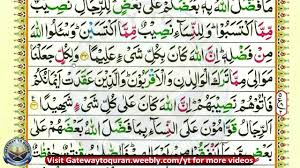 مَا فَضَّلَ اللّٰهُ بِهٖ بَعْضَكُمْ عَلٰى بَعْضٍ ؕ لِلرِّجَالِ نَصِیْبٌ
مِّمَّا اكْتَسَبُوْا ؕ وَ لِلنِّسَآءِ نَصِیْبٌ مِّمَّا اكْتَسَبْنَ ؕ وَ سْـَٔلُوا اللّٰهَ
مِنْ فَضْلِهٖ ؕ اِنَّ اللّٰهَ كَانَ بِكُلِّ شَیْءٍ عَلِیْمًا وَ لِكُلٍّ جَعَلْنَا
مَوَالِیَ مِمَّا تَرَكَ الْوَالِدٰنِ وَ الْاَقْرَبُوْنَ ؕ وَ الَّذِیْنَ عَقَدَتْ اَیْمَانُكُمْ
فَاٰتُوْهُمْ نَصِیْبَهُمْ ؕ اِنَّ اللّٰهَ كَانَ عَلٰى كُلِّ شَیْءٍ شَهِیْدًا
اَلرِّجَالُ قَوّٰمُوْنَ عَلَى النِّسَآءِ بِمَا فَضَّلَ اللّٰهُ بَعْضَهُمْ عَلٰى
Visit Gatewaytoquran.weebly.com/yt for more videos